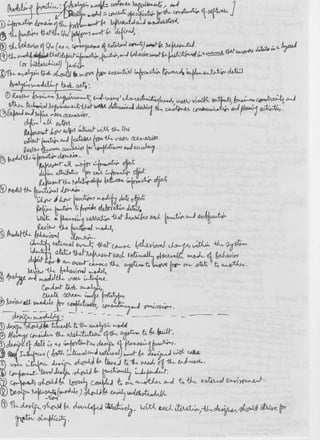 Modeling practices: [Analysis models → customer requirements, and
[Design model → concrete specification for the construction of software]
① information domain of the problem must be represented and understood.
② the functions that the S/w performs must be defined.
③ the behavior of S/w (as a consequence of external events) must be represented.
④ the models that depict information, function, and behavior must be partitioned in a manner that uncovers details in a layered
(or hierarchical) fashion.
⑤ The analysis task should move from essential information toward implementation detail
Analysis modeling task sets:
① Review business requirements, end users' characteristics/needs, user-visible outputs, business constraints, and
other technical requirements that were determined during the customer communication and planning activities.
② Expand and refine user scenarios.
define all actors
Represent how actors interact with the S/w
extract functions and features from the user scenarios
Review the user scenarios for completeness and accuracy
③ Model the information domain.
Represent all major information objects
define attributes for each information object
Represent the relationships between information objects
④ Model the functional domain.
Show how functions modify data objects
Refine functions to provide elaborative detail
Write a processing narrative that describes each function and subfunction
Review the functional models
⑤ Model the behavioral domain:
identify external events that cause behavioral changes within the system
identify states that represent each externally observable mode of behavior
depict how an event causes the system to move from one state to another
Review the behavioral models
⑥ Analyze and model the user interface
Conduct task analysis
Create screen image prototypes
⑦ Review all models for completeness, consistency and omissions.
design modeling:
① design should be traceable to the analysis model
② Always consider the architecture of the system to be built.
③ design of data is as important as design of processing functions.
④ Interfaces (both internal and external) must be designed with care
⑤ user interface design should be tuned to the needs of the end user.
⑥ Component-level design should be functionally independent.
⑦ Components should be loosely coupled to one another and to the external environment.
⑧ Design representations (models) should be easily understandable
⑨ The design should be developed iteratively. With each iteration, the designer should strive for
greater simplicity.